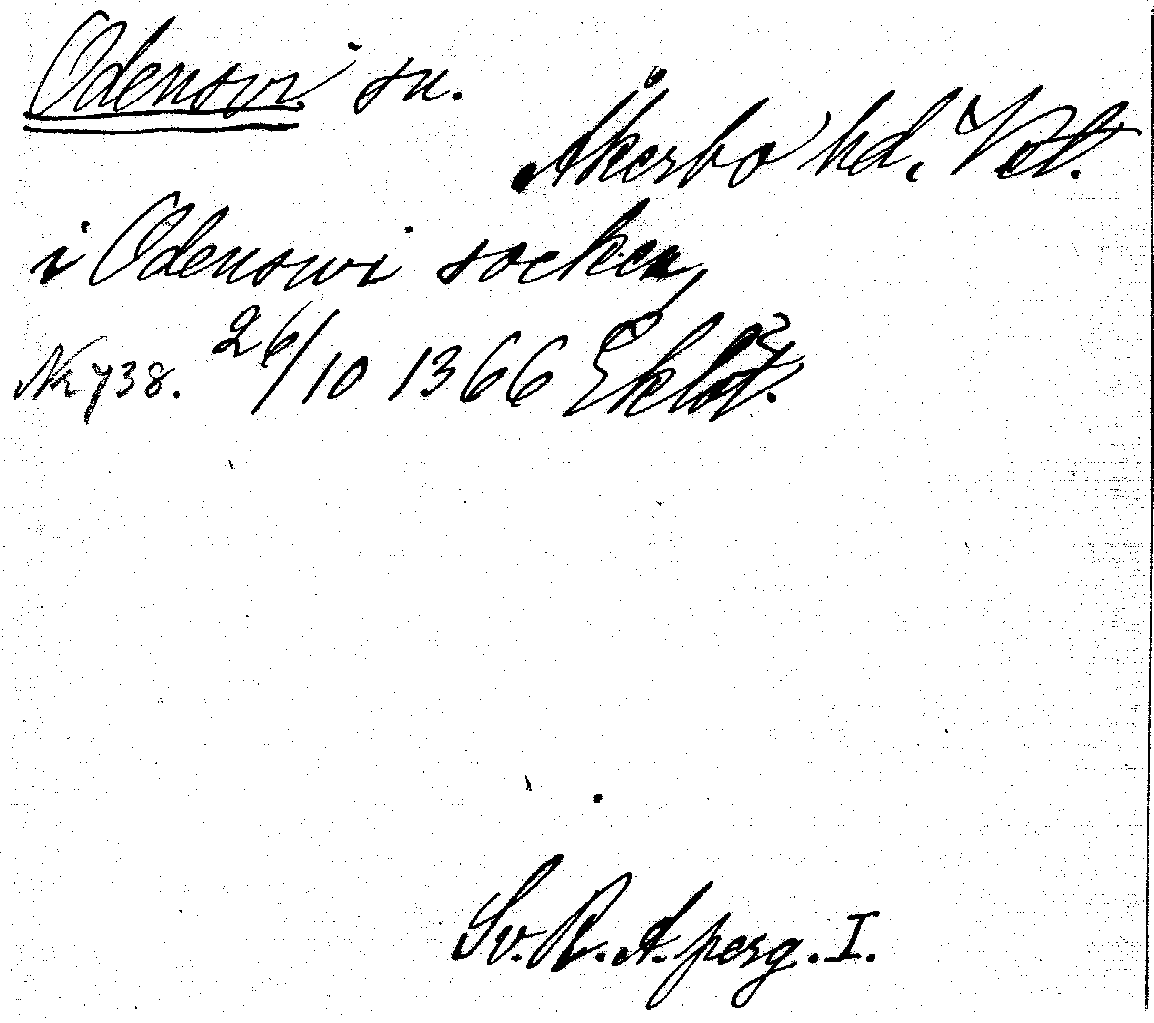 Odensvi sn.
Åkerbo hd. Vstl.
i Odenswi socken,
Nr 738. 26/10 1366 Eklöf.
Sv. R. A. perg. I.